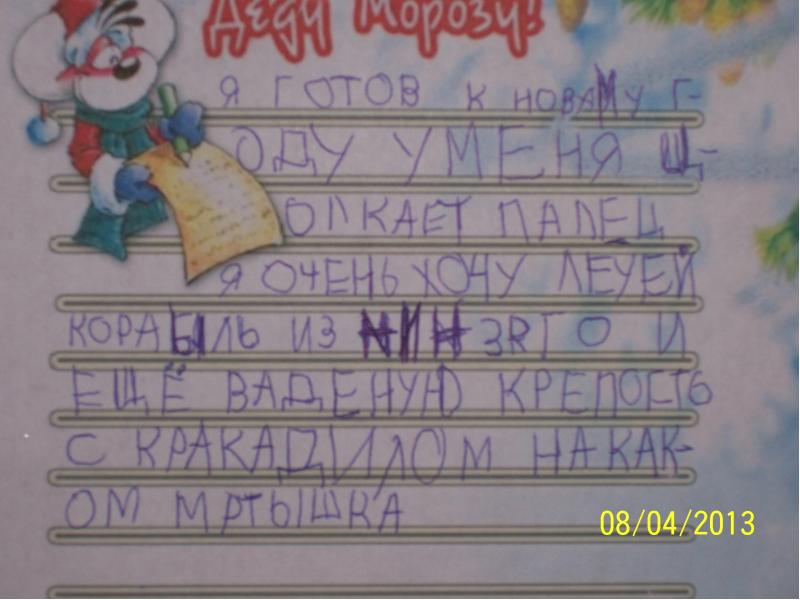 Деду Морозу!
Я ГОТОВ К НОВАМУ Г-
ОДУ УМЕНЯ Щ-
ОЛКАЕТ ПАЛЕЦ
Я ОЧЕНЬ ХОЧУ ЛЕУЕЙ
КОРАБЫЛЬ ИЗ НИН ЗRГО И
ЕЩЁ ВАДЕНУЮ КРЕПОСТЬ
С КРАКАДИЛОМ НАКАК-
ОМ МРТЫШКА
08/04/2013